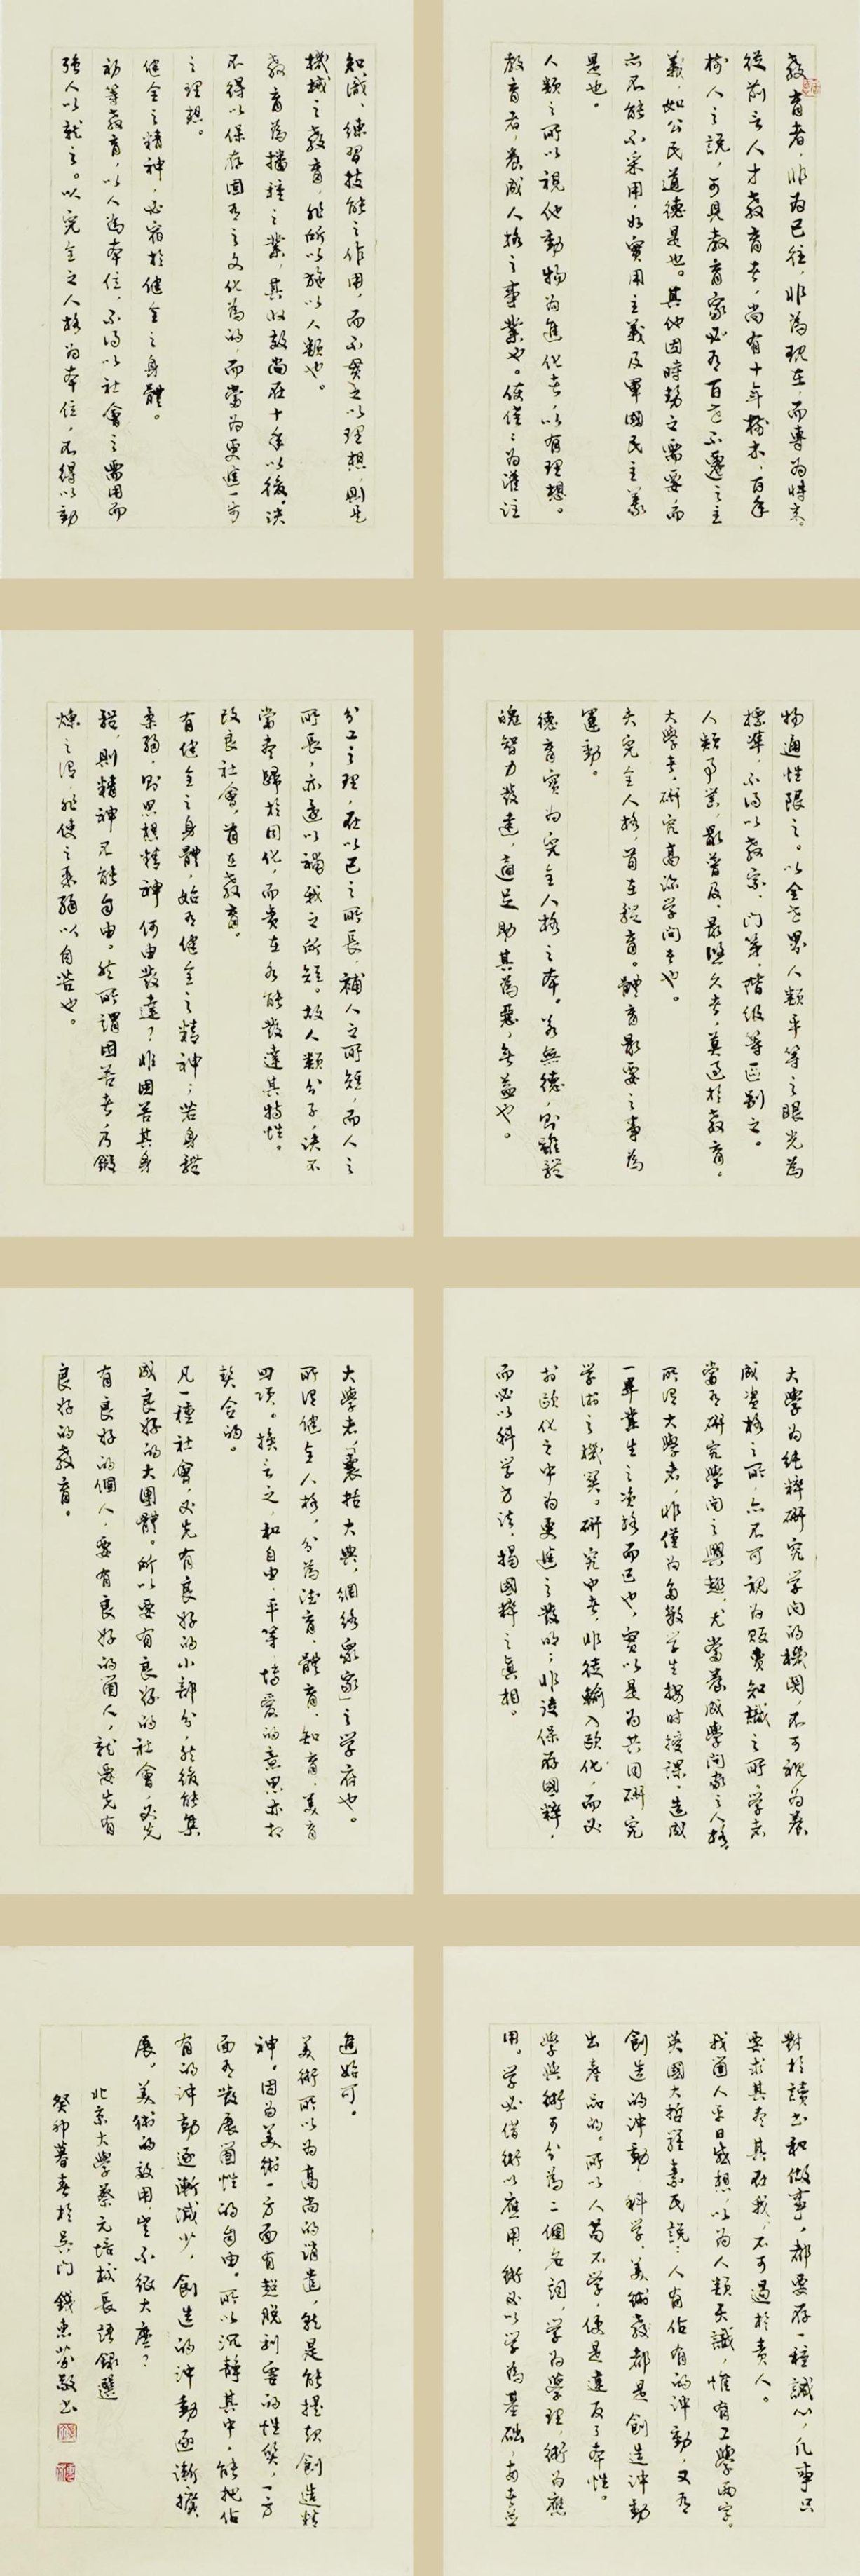 教育者，非為已往，非為現在，而專為將來。
從前言人才教育者，尚有十年樹木，百年
樹人之說，可見教育家必有百世不遷之主
義，如公民道德是也。其他因時勢之需要，而
亦不能不采用，如實用主義及軍國民主義
是也。
人類之所以視他動物為進化者，以有理想。
教育者，養成人格之事業也。使僅僅為灌注
知識、練習技能之作用，而不貫之以理想，則是
機械之教育，非所以施以人類也。
教育為播種之業，其收效尚在十年以後，決
不得以保存固有之文化為的，而當為更進一步
之理想。
健全之精神，必宿於健全之身體。
初等教育，以人為本位，不得以社會之需用而
強人以就之。以完全之人格為本位，不得以動
物通性限之。以全世界人類平等之眼光為
標準，不得以教宗、门第、階级等區别之。
人類事業，最普及、最悠久者，莫過於教育。
大學者，研究高深学问者也。
夫完全人格，首在體育。體育最要之事為
運動。
德育實為完全人格之本。若無德，則雖體
魄智力發達，適足助其為惡，無益也。
分工之理，在以己之所長，補人之所短，而人之
所長，亦還以補我之所短。故人類分子，決不
當盡歸於同化，而貴在各能發達其特性。
改良社會，首在教育。
有健全之身體，始有健全之精神；若身體
柔弱，則思想精神何由發達？非困苦其身
體，則精神不能自由。然所謂困苦者，乃鍛
煉之謂，非使之柔弱以自苦也。
大學為純粹研究学问的機關，不可視為養
成資格之所，亦不可視為販賣知識之所。学者
當有研究學问之興趣，尤當養成學问家之人格。
所謂大學者，非僅為多數学生按時授課，造成
一畢業生之資格而已也，實以是為共同研究
学術之機關。研究也者，非徒輸入歐化，而必
於歐化之中為更進之發明；非徒保存國粹，
而必以科学方法，揭國粹之真相。
大學者，「囊括大典，網络眾家」之学府也。
所謂健全人格，分為德育、體育、知育、美育
四項。換言之，和自由、平等、博愛的意思亦相
契合的。
凡一種社會，必先有良好的小部分，然後能集
成良好的大團體。所以要有良好的社會，必先
有良好的個人，要有良好的個人，就要先有
良好的教育。
對於讀书和做事，都要存一種誠心，凡事只
要求其盡其在我，不可過於责人。
我個人平日感想，以為人類天識，惟有工學两字。
英國大哲羅素氏說：人有佔有的冲動，又有
創造的冲動。科学、美術發都是創造冲動
出產品的。所以人苟不学，便是違反了本性。
學與術可分為二個名詞，学為學理，術為應
用。学必借術以應用，術必以学為基础，兩者並
進始可。
美術所以為高尚的消遣，就是能提起創造精
神。因為美術一方面有超脱利害的性質，一方
面有發展個性的自由。所以沉靜其中，能把佔
有的冲動逐漸減少，創造的冲動逐漸擴
展。美術的效用，豈不很大麼？
北京大學蔡元培校長語錄選
癸卯暮春於吴门 錢惠芬敬书